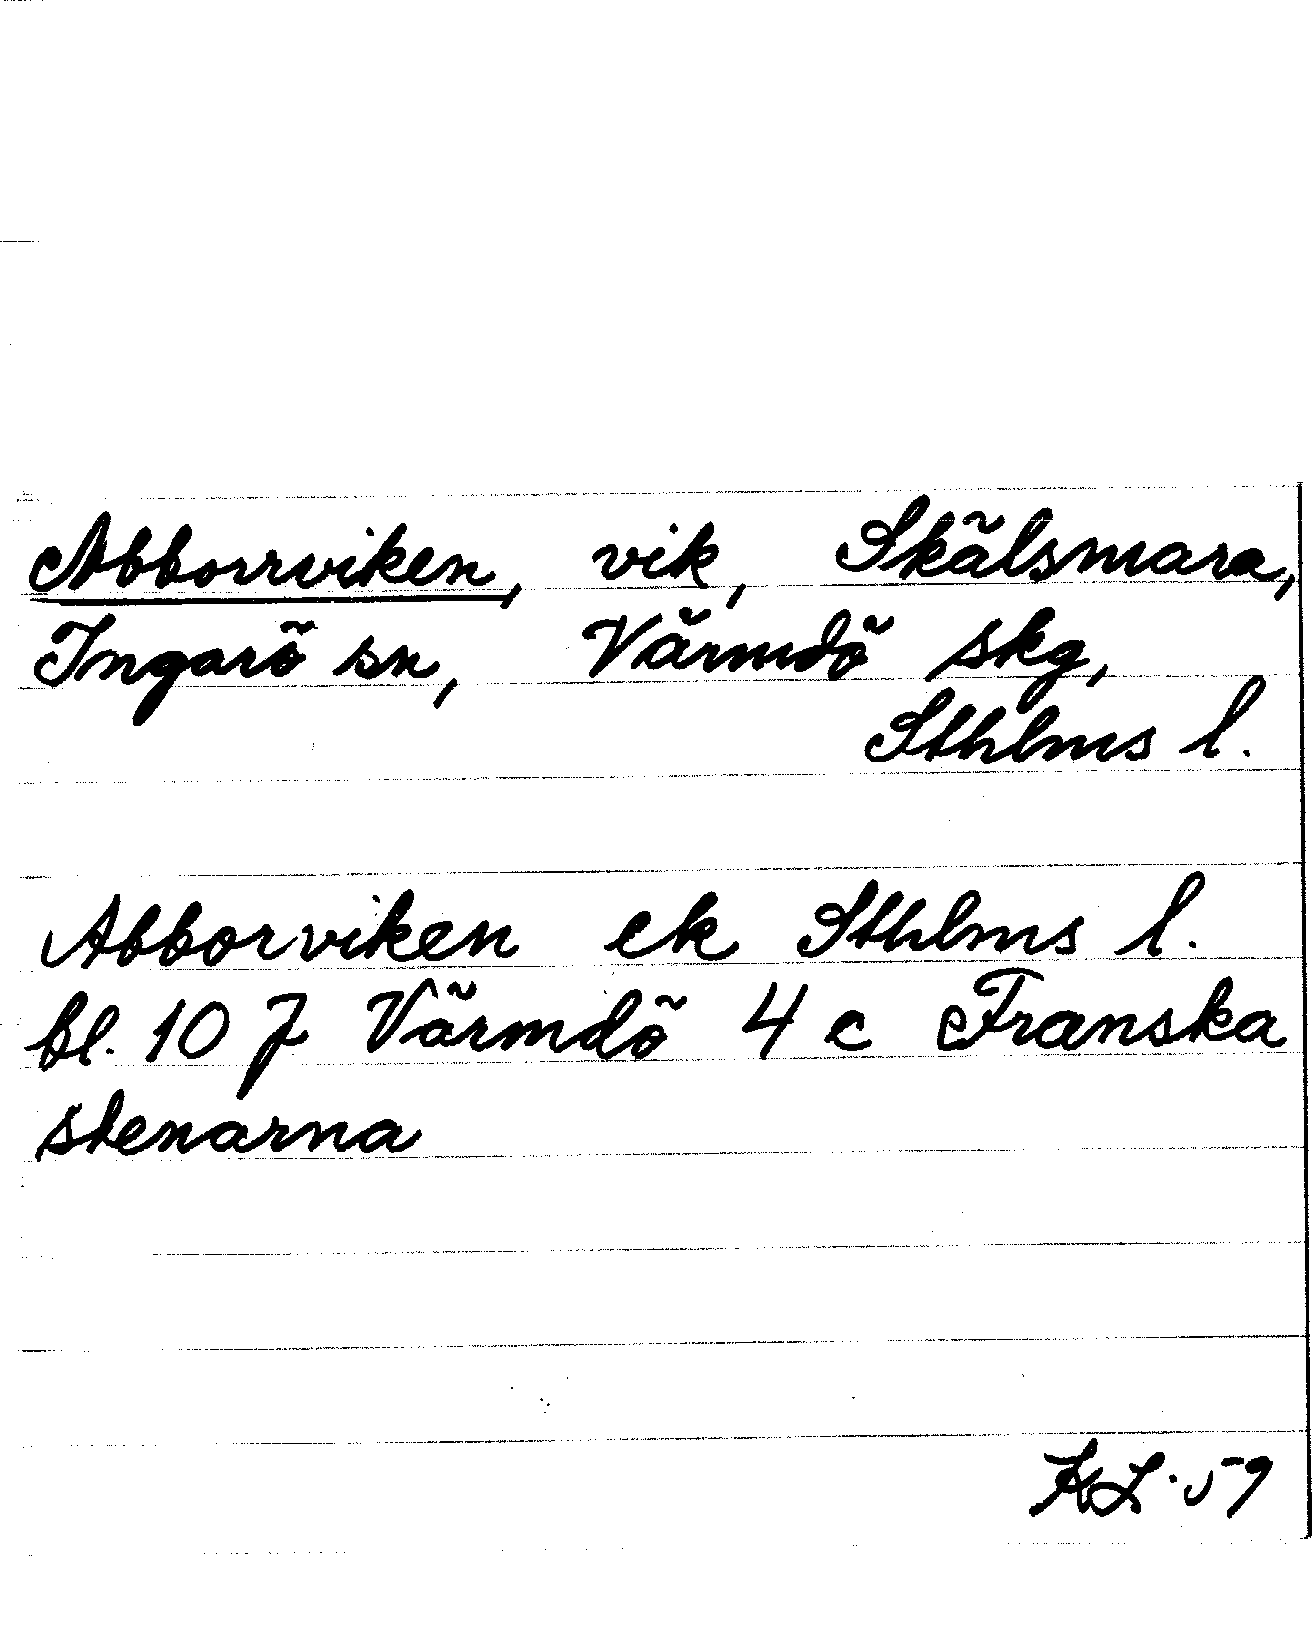 Abborrviken, vik, Skälsmara,
Ingarö sn, Värmdö skg,
Sthlms l.
Abborviken ek Sthlms l.
bl. 10 J Värmdö 4 c Franska
stenarna
KL·59